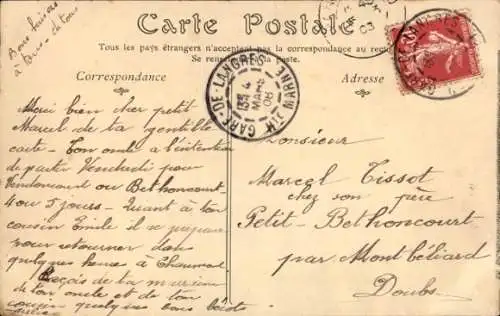 Bons baisers
à tous - de tous
Carte Postale
Tous les pays étrangers n'acceptent pas la correspondance au recto
Se renseigner à la poste.
Correspondance
Adresse
GARE-DE-LANGRES
13 4
MARS
08
HTE MARNE
Merci bien cher petit
Marcel de ta gentille
carte - Ton oncle a l'intention
de partir Vendredi pour
Vendoncourt ou Bethoncourt
4 ou 5 jours - Quant à ton
cousin Emile il se prépare
pour retourner dans
quelques heures à Chaumont
Reçois de ta
ton oncle et de ton
cousin quelques bons
Monsieur
Marcel Tissot
chez son père
Petit-Bethoncourt
par Montbéliard
Doubs